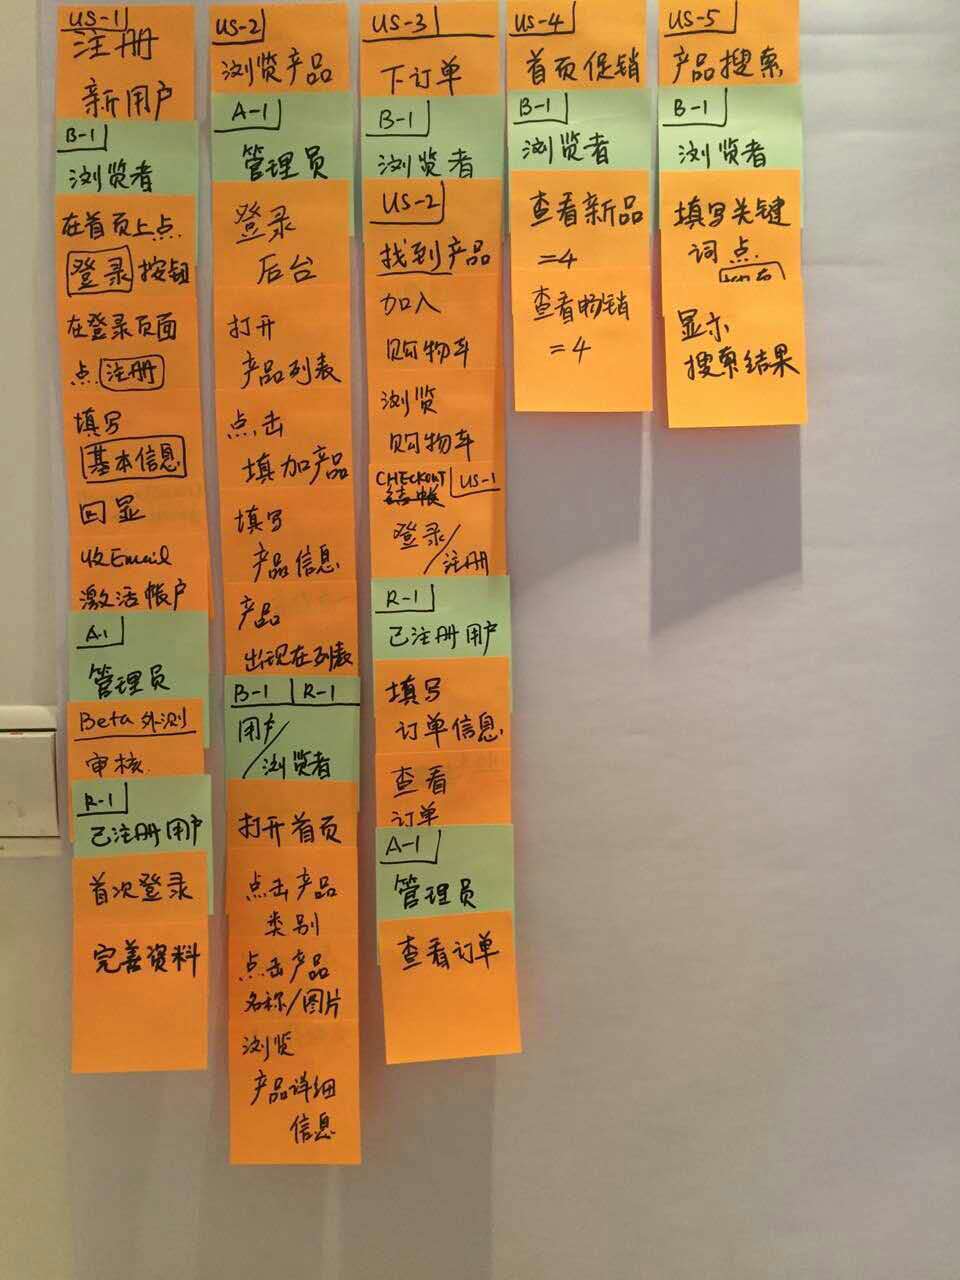 US-1
注册
新用户
B-1
浏览者
在首页上点
登录 按钮
在登录页面
点 注册
填写
基本信息
回显
收Email
激活帐户
A-1
管理员
Beta外测
审核
R-1
已注册用户
首次登录
完善资料
US-2
浏览产品
A-1
管理员
登录
后台
打开
产品列表
点击
填加产品
填写
产品信息
产品
出现在列表
B-1 R-1
用户/
浏览者
打开首页
点击产品
类别
点击产品
名称/图片
浏览
产品详细
信息
US-3
下订单
B-1
浏览者
US-2
找到产品
加入
购物车
浏览
购物车
CHECKOUT US-1
结帐
登录/
注册
R-1
已注册用户
填写
订单信息
查看
订单
A-1
管理员
查看订单
US-4
首页促销
B-1
浏览者
查看新品
=4
查看畅销
=4
US-5
产品搜索
B-1
浏览者
填写关键
词 点
显示
搜索结果